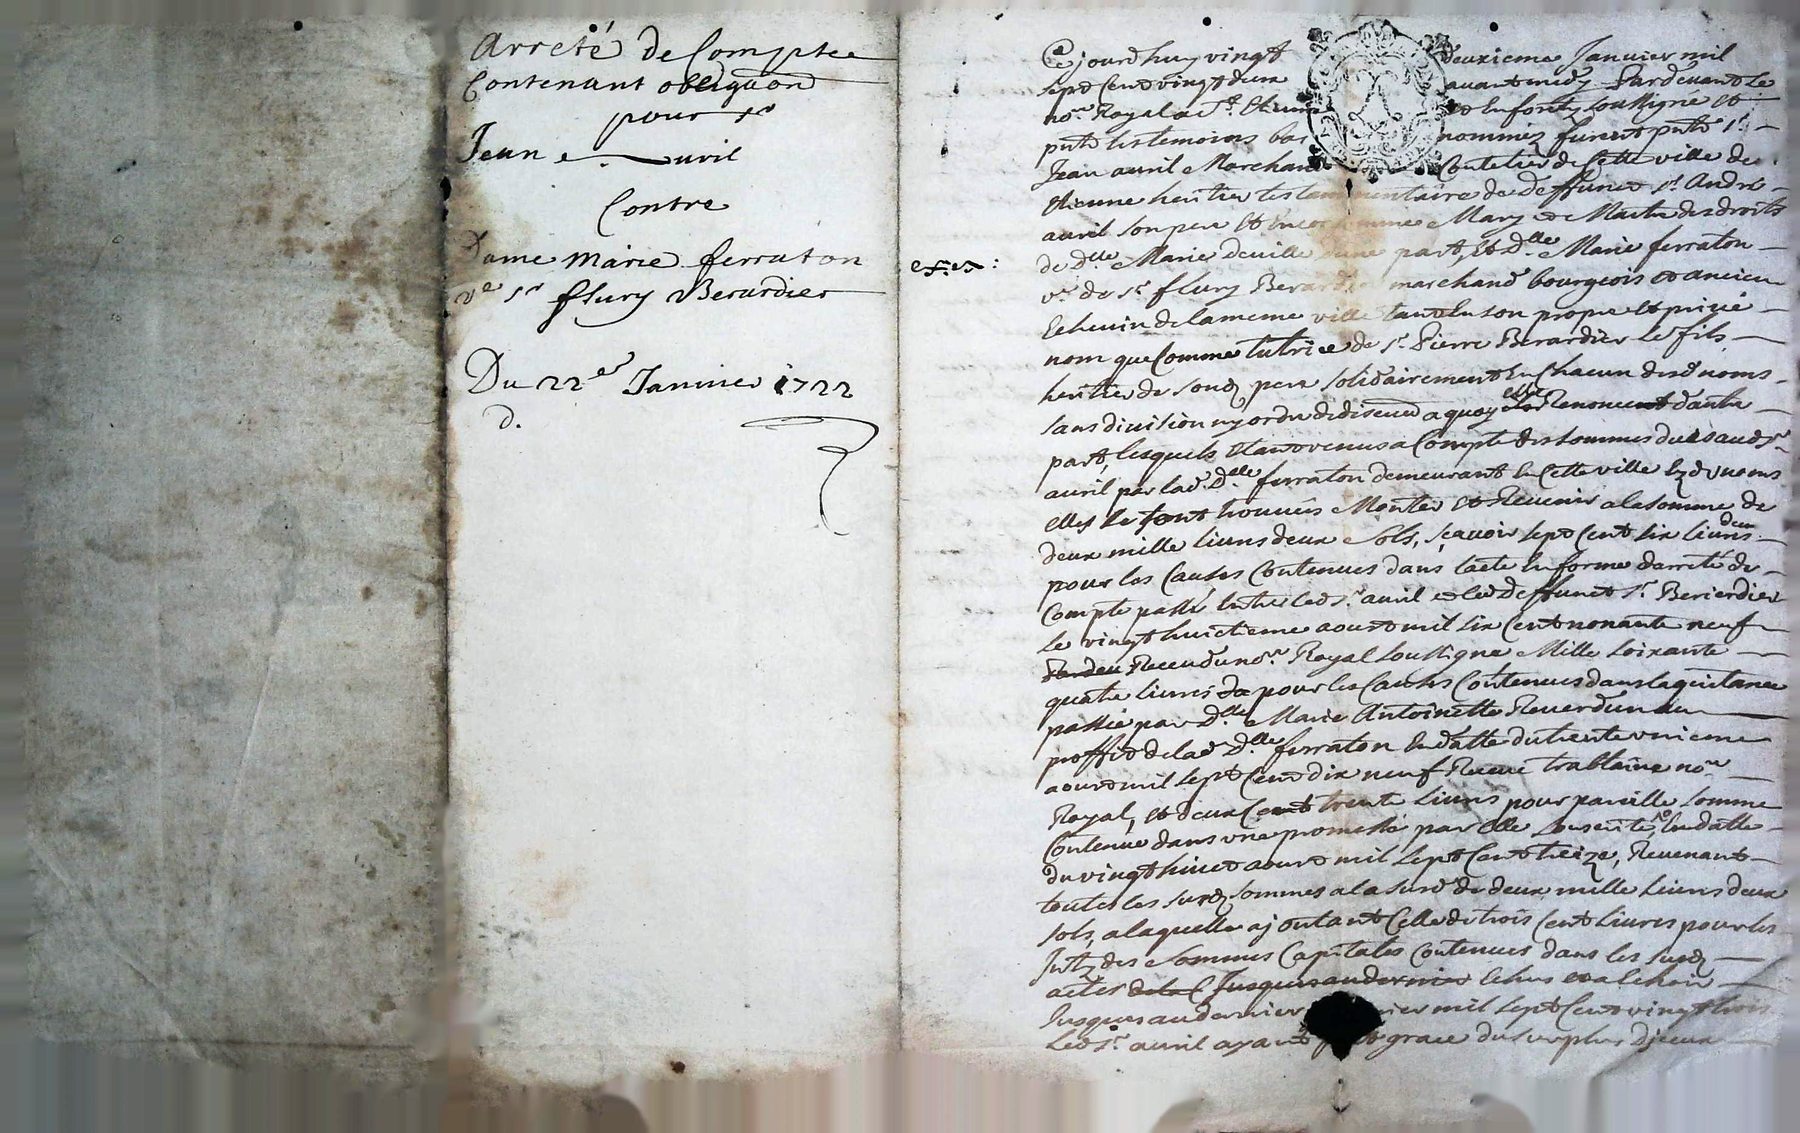 Arreté de Compte
Contenant obligāon
pour sr
Jean Auril
Contre
Dame Marie ferraton
ve sr flury Berardier
Du 22e Janvier 1722
d.
Ce jourdhuy vingt deuxieme Janvier mil
sept Cent vingt deux avant midy Pardevant Le
nore Royal a St Etienne en forêtz soussigné et
pntz les temoins bas nommez furent pntz sr
Jean auril Marchand Coutelier de Cette ville de
Etienne heritier testamentaire de deffunct sr André
auril son pere et encor comme Mary et Maitre des droits
de dlle Marie deville d'une part, et dlle Marie ferraton
ve de sr flury Berardier marchand bourgeois et ancien
Echevin de la meme ville tant en son propre et privé
nom que Comme tutrice de sr Pierre Berardier le fils
heritier de sond pere solidairement en Chacun desd noms
sans division ny ordre de discution a quoy elle Renonce d'autre
part, lesquels etant venus a Compte des sommes dues aud sr
auril par lad dlle ferraton demeurant en Cette ville esd noms
elles se sont trouvées Monter et Revenir a la somme de
deux mille livres deux sols, sçavoir sept Cent six livres deux
pour les Causes Contenues dans l'acte en forme d'arreté de
Compte passé entre led sr auril et led deffunct sr Berierdier
Le vingt huictieme aoust mil six Cent nonante neuf
Pardev Receu du nore Royal soussigné Mille soixante
quatre livres pour les Causes Contenues dans la quittance
passée par dlle Marie Antoinette Reverdun au
proffit de lad dlle ferraton en datte du trente unieme
aoust mil sept Cent dix neuf Receue trablaine nore
Royal, et deux Cent trente livres pour pareille somme
Contenue dans une promesse par elle souscrite en datte
du vingt huict aoust mil sept Cent treize, Revenant
toutes les susd sommes a la susd de deux mille livres deux
sols, a laquelle ajoutant Celle de trois Cent livres pour les
Intz des sommes Capitales Contenues dans les susd
actes Jusques au dernier echus et a echoir
Jusques au dernier mil sept Cent vingt trois
Led sr auril ayant grace du surplus